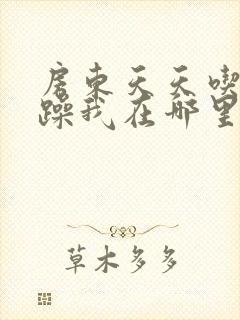 房东天天喫
躁我在哪里
草木多多